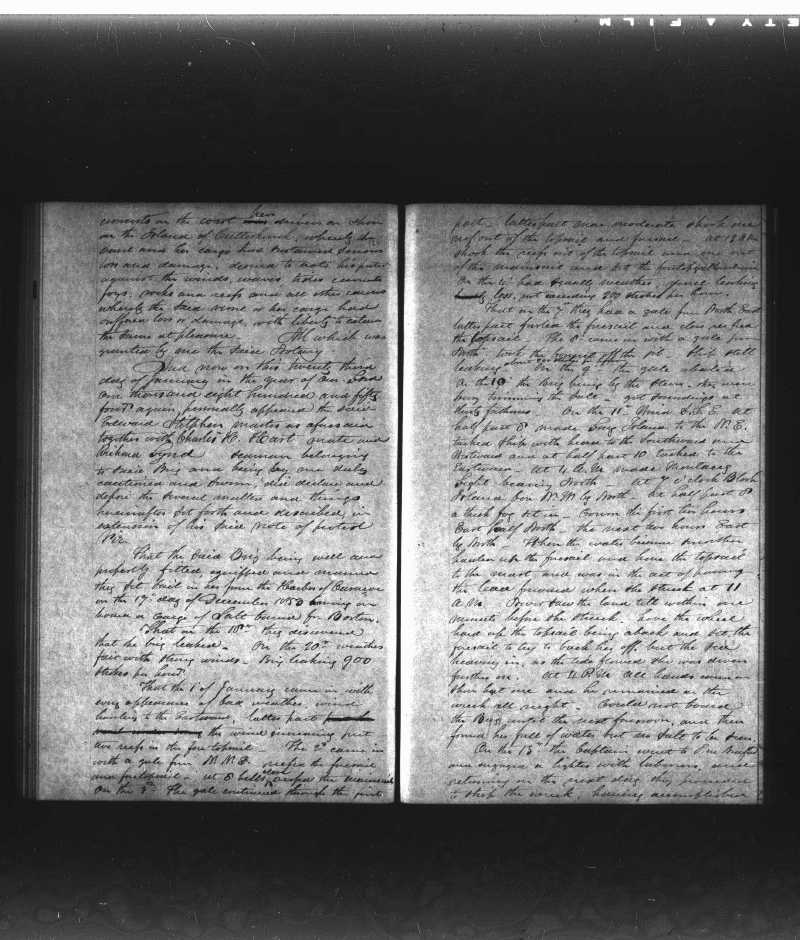 ETY A FILM
on the coast been driven on shore
on the Island of Cuttyhunk, whereby the
and her cargo had sustained serious
loss and damage, desired to note his protest
against the winds, waves, tides
fogs, rocks and reefs and all other causes
whereby the said or her cargo had
suffered loss or damage, with liberty to extend
the same at pleasure. All which was
granted by me the said Notary
And now on this twenty third
day of January in the year of our Lord
one thousand eight hundred and fifty
four again, personally appeared the said
Edward Stephen master as aforesaid
together with Charles H. Hart mate and
Richard seaman belonging
to said Brig and being by me duly
cautioned and sworn, did declare and
depose the several matters and things
hereinafter set forth and described, in
extension of his said note of protest
Viz.
That the said Brig being well and
properly fitted equipped and manned
they set sail in her from the Harbor of
on the 17th day of December 1853 having on
board a cargo of Salt bound for Boston.
That on the 18th they discovered
that the brig leaked. On the 20th weather
fair with strong winds. Brig leaking 900
strokes per hour.
That the 1st of January came in with
every appearance of bad weather, wind
hauling to the Eastward, latter part
the wind increasing put
two reefs in the fore topsail. The 2d came in
with a gale from N.N.E. reefed the foresail
and foretopsail. at 8 close reefed the mainsail
on the 3d The gale continued through the first
part. latter part more moderate shook one
reef out of the topsail and foresail. at 12
shook the reefs out of the topsail and one out
of the mainsail and set the
On the 4th had squally weather, vessel leaking
less, not exceeding 200 strokes per hour.
That on the 7th they had a gale from North East
latter part furled the foresail and close reefed
the topsail. The 8th came in with a gale from
North took the off the Ship still
leaking On the 9th the gale abated
On the 10th the Brig being by the stern, we were
busy trimming the salt. got soundings at
thirty fathoms On the 11th Wind S.S.E. at
half past 8 made Long Island to the N.E.
tacked ship with head to the Southward and
Westward and at half past 10 tacked to the
Eastward. At 4 A.M. made Montauk
Light bearing North. At 7 o'clock Block
Island bore N.W. by North. At half past 8
a thick fog set in the first two hours
East half North the next two hours East
by North. When the water became smoother
hauled up the foresail and hove the topsail
to the mast and was in the act of passing
the lead forward when she struck at 11
A.M. Never saw the land till within one
minute before she struck. hove the wheel
hard up the topsail being aback and set, the
foresail to try to back her off. but the sea
heaving in, as the tide flowed she was driven
further on. At 4 P.M. all hands went on
shore but one and he remained on the
wreck all night. Could not board
the Brig until the next forenoon, and then
found her full of water but no salt to be seen.
On the 13th the Captain went to New Bedford
and engaged a lighter with laborers, and
returning on the next day they proceeded
to strip the wreck, having accomplished